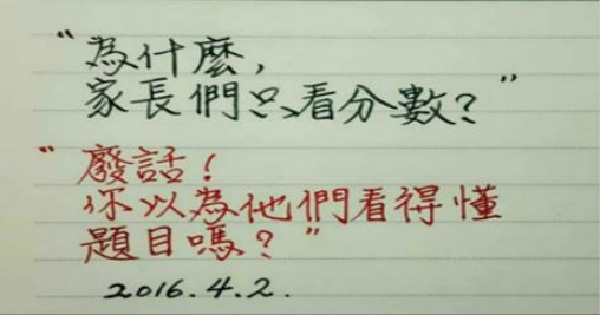 “為什麼,
家長們只看分數？”
“廢話！
你以為他們看得懂
題目嗎？”
2016.4.2.